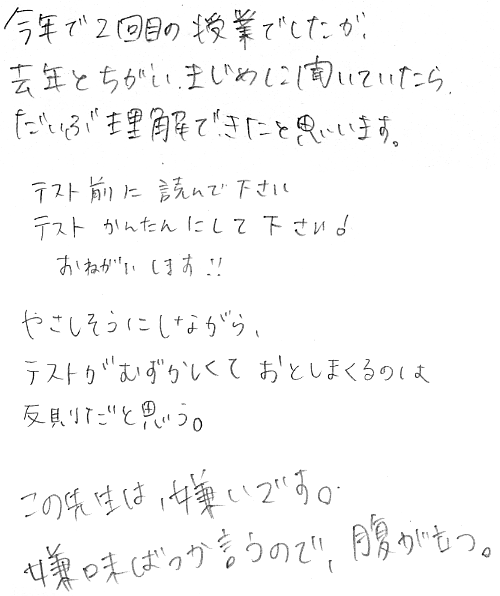 今年で2回目の授業でしたが、
去年とちがい、まじめに聞いていたら、
だいぶ理解できたと思います。
テスト前に読んで下さい
テストかんたんにして下さい!
おねがいします!!
やさしそうにしながら、
テストがむずかしくておとしまくるのは
反則だと思う。
この先生は、嫌いです。
嫌味ばっか言うので、腹がもつ。